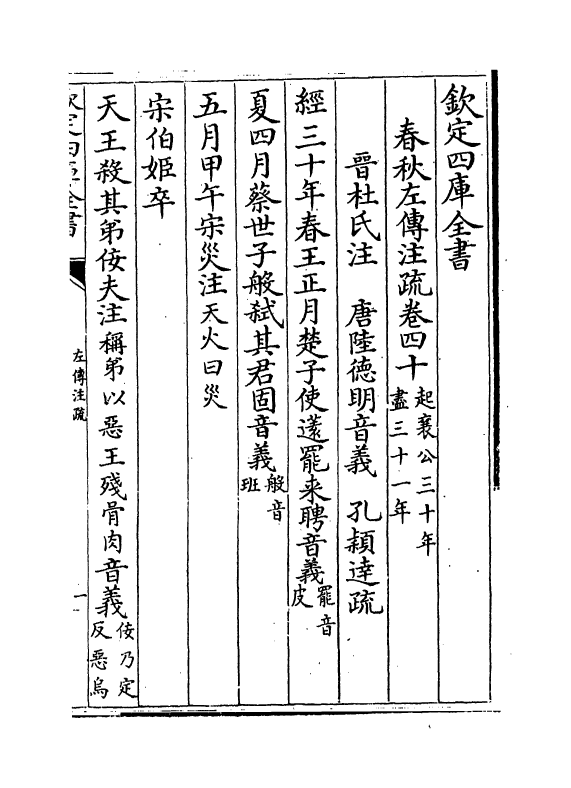 欽定四庫全書
春秋左傳注疏卷四十起襄公三十年盡三十一年
晉杜氏注　唐陸德明音義　孔穎達疏
經三十年春王正月楚子使薳罷来聘音義罷音皮
夏四月蔡世子般弑其君固音義般音班
五月甲午宋災注天火曰災
宋伯姬卒
天王殺其弟佞夫注稱弟以惡王殘骨肉音義佞乃定反惡烏
欽定四庫全書
左傳注疏
一